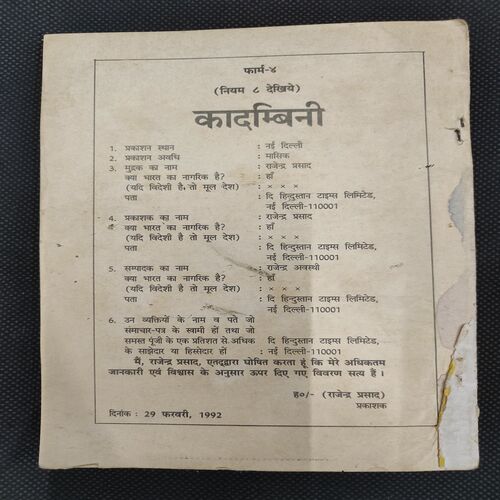 फार्म-४
(नियम ८ देखिये)
कादम्बिनी
1. प्रकाशन स्थान : नई दिल्ली
2. प्रकाशन अवधि : मासिक
3. मुद्रक का नाम : राजेन्द्र प्रसाद
क्या भारत का नागरिक है? : हाँ
(यदि विदेशी है तो मूल देश) : × × ×
पता : दि हिन्दुस्तान टाइम्स लिमिटेड,
नई दिल्ली-110001
4. प्रकाशक का नाम : राजेन्द्र प्रसाद
क्या भारत का नागरिक है? : हाँ
(यदि विदेशी है तो मूल देश) : × × ×
पता : दि हिन्दुस्तान टाइम्स लिमिटेड,
नई दिल्ली-110001
5. सम्पादक का नाम : राजेन्द्र अवस्थी
क्या भारत का नागरिक है? : हाँ
(यदि विदेशी है तो मूल देश) : × × ×
पता : दि हिन्दुस्तान टाइम्स लिमिटेड,
नई दिल्ली-110001
6. उन व्यक्तियों के नाम व पते जो
समाचार-पत्र के स्वामी हों तथा जो
समस्त पूंजी के एक प्रतिशत से अधिक : दि हिन्दुस्तान टाइम्स लिमिटेड,
के साझेदार या हिस्सेदार हों : नई दिल्ली-110001
मैं, राजेन्द्र प्रसाद, एतद्द्वारा घोषित करता हूं कि मेरे अधिकतम
जानकारी एवं विश्वास के अनुसार ऊपर दिए गए विवरण सत्य हैं ।
ह०/- (राजेन्द्र प्रसाद)
प्रकाशक
दिनांक : 29 फरवरी, 1992